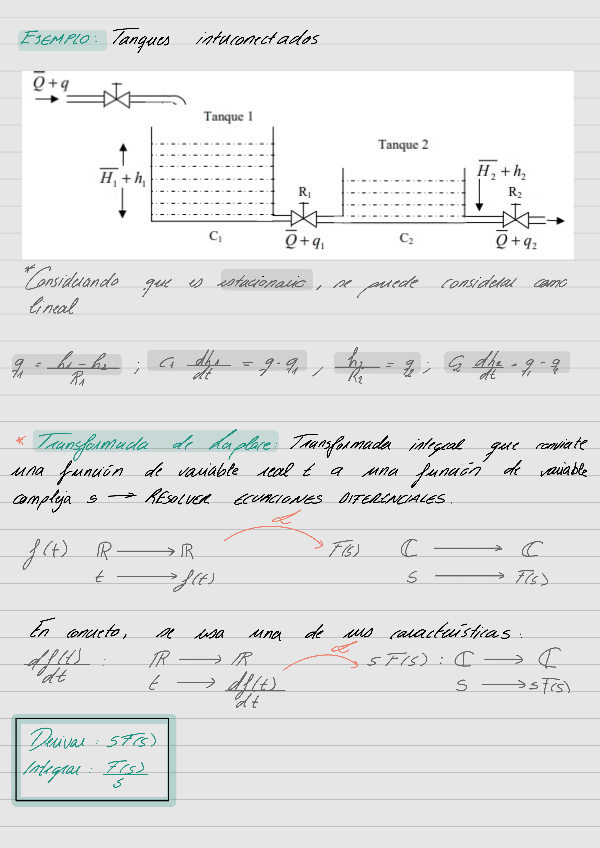 EJEMPLO: Tanques interconectados
Q̅ + q
Tanque 1
Tanque 2
H̅₁ + h₁
H̅₂ + h₂
R₁
R₂
C₁
Q̅ + q₁
C₂
Q̅ + q₂
*Considerando que es estacionario, se puede considerar como
lineal
q₁ = (h₁ - h₂)/R₁ ; C₁ dh₁/dt = q - q₁ , h₂/R₂ = q₂ ; C₂ dh₂/dt = q₁ - q₂
* Transformada de Laplace: Transformada integral que convierte
una función de variable real t a una función de variable
compleja s → RESOLVER ECUACIONES DIFERENCIALES.
ℒ
f(t) ℝ → ℝ F(s) ℂ → ℂ
t → f(t) s → F(s)
En concreto, se usa una de sus características:
ℒ
df(t)/dt : ℝ → ℝ sF(s) : ℂ → ℂ
t → df(t)/dt s → sF(s)
Derivar : sF(s)
Integrar : F(s)/s